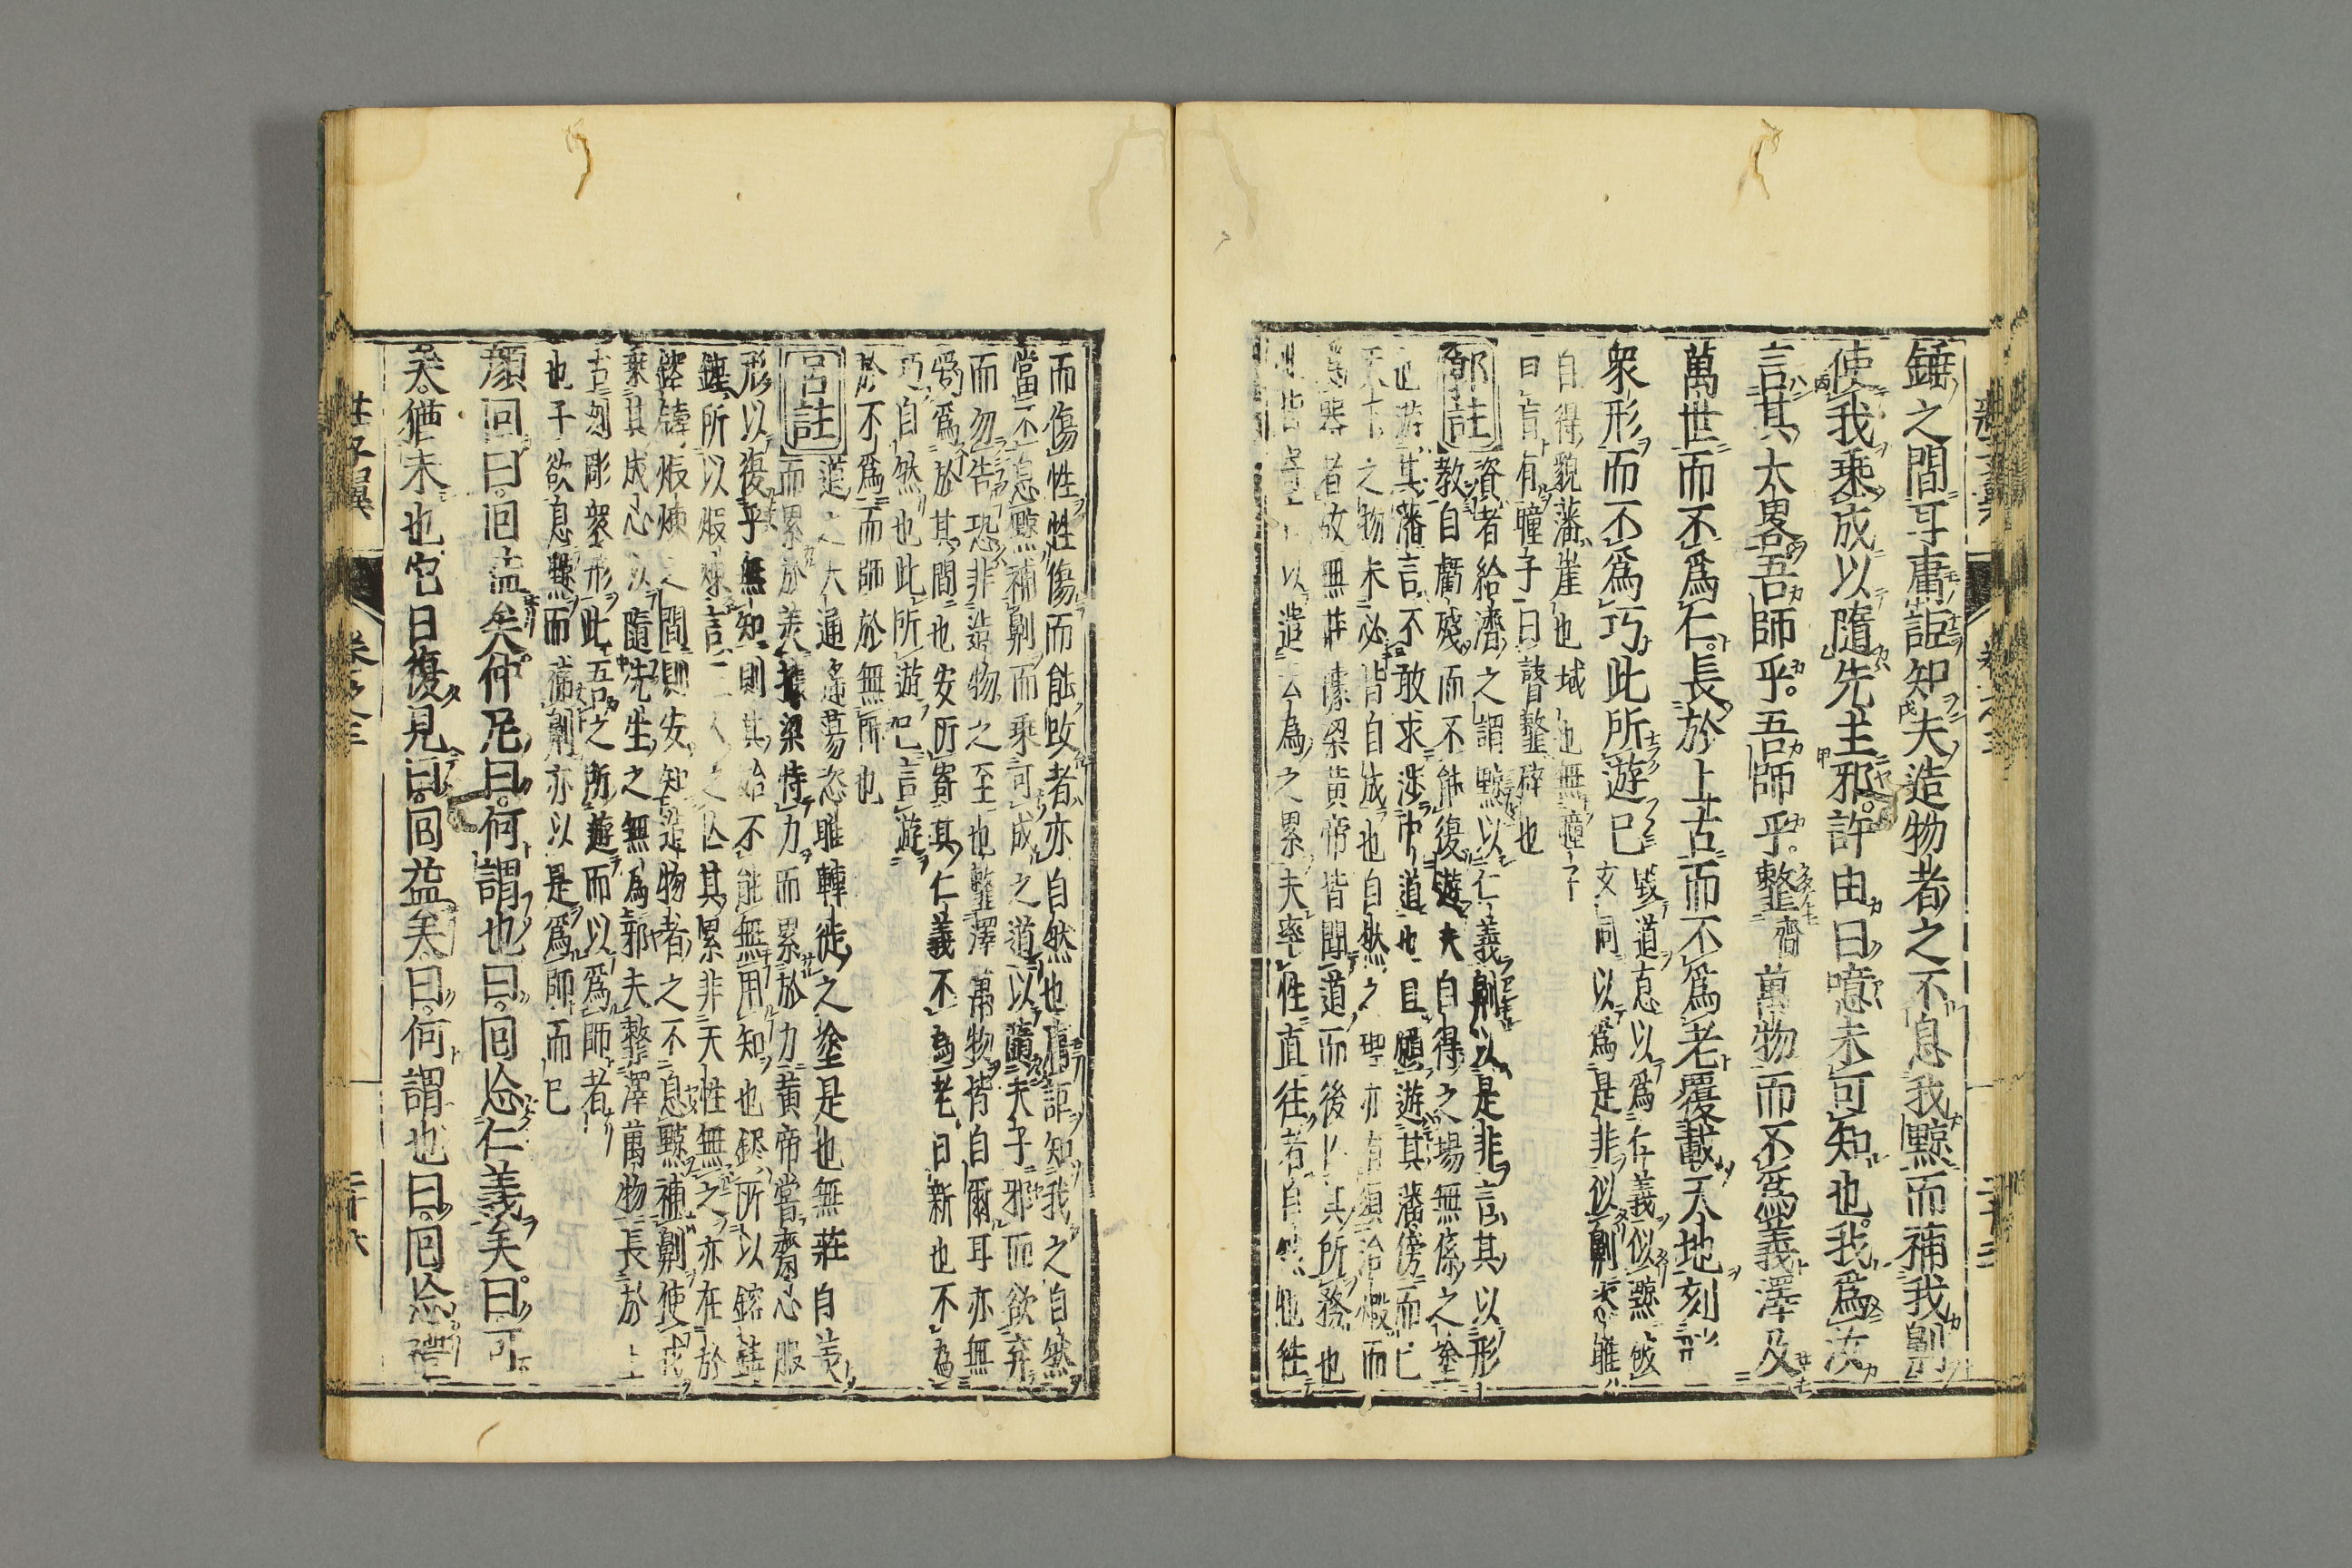 錘之間耳庸詎知夫造物者之不息我黥而補我劓
使我乗成以隨先生邪許由曰噫未可知也我爲汝
言其大畧吾師乎吾師乎𩐋萬物而不爲義澤及
萬世而不爲仁長於上古而不爲老覆載天地刻
衆形而不爲巧此所遊已
毀道息以爲仁義似黥
文同以爲是非似劓
自得貌藩崖也域也無瞳子
曰盲有瞳子曰瞽𩐋碎也
郭註
資者給濟之謂黥以仁義劓以是非言其以形
教自虧殘而不能復遊夫自得之場無係之塗
也遊其藩言不敢求涉中道也且願遊其藩傍而已
天下之物未必皆自成也自然之理亦有須冶煅而
爲器者故無莊據梁黄帝皆聞道而後亡其所務也
此皆寄言以遣云為之累夫率性直往者自然也往
而傷性性傷而能改者亦自然也庸詎知我之自然
當不息黥補劓而乗可成之道以隨夫子邪而欲弃
而勿告恐非造物之至也𩐋澤萬物皆自爾耳亦無
愛爲於其間也安所寄其仁義不爲老日新也不為
巧自然也此所遊已言遊
於不爲而師於無師也
吕註
道之大通遙蕩恣雎轉徙之塗是也無莊自美
而累於美據梁恃力而累於力黄帝嘗齋心服
形以復乎無知則其始不能無用知也鑪所以鎔鑄
錘所以煅煉言三人之亡其累非天性無之亦在於
鎔鑄煅煉之間則安知造物者之不息黥補劓使我
乗其成心以隨先生之無爲邪夫𩐋澤萬物長於上
古刻彫衆形此吾之所遊而以爲師者
也子欲息黥而補劓亦以是爲師而已
顏回曰回益矣仲尼曰何謂也曰回忘仁義矣曰可
矣猶未也它日復見曰回益矣曰何謂也曰回忘禮
莊子翼
卷之三